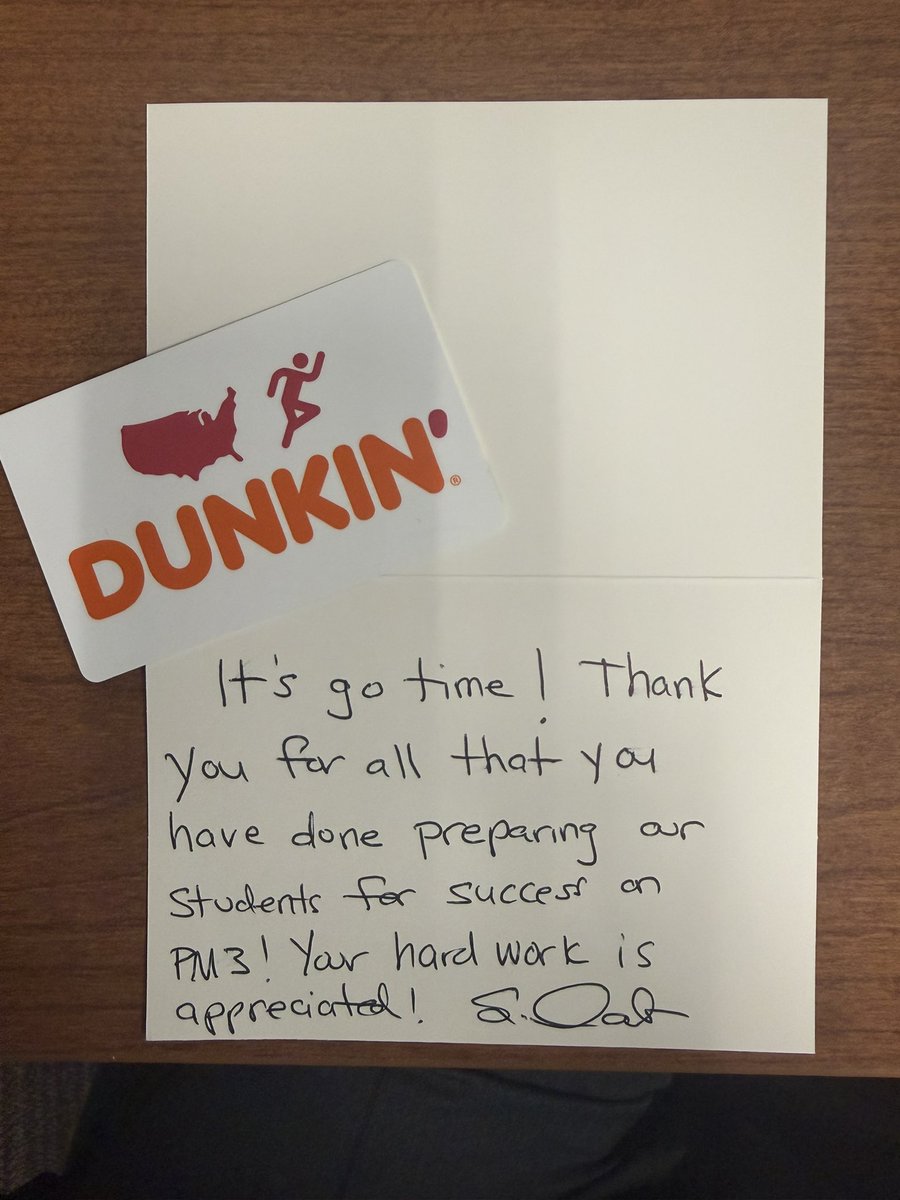 DUNKIN'®
It's go time! Thank
you for all that you
have done preparing our
students for success on
PM3! Your hard work is
appreciated!